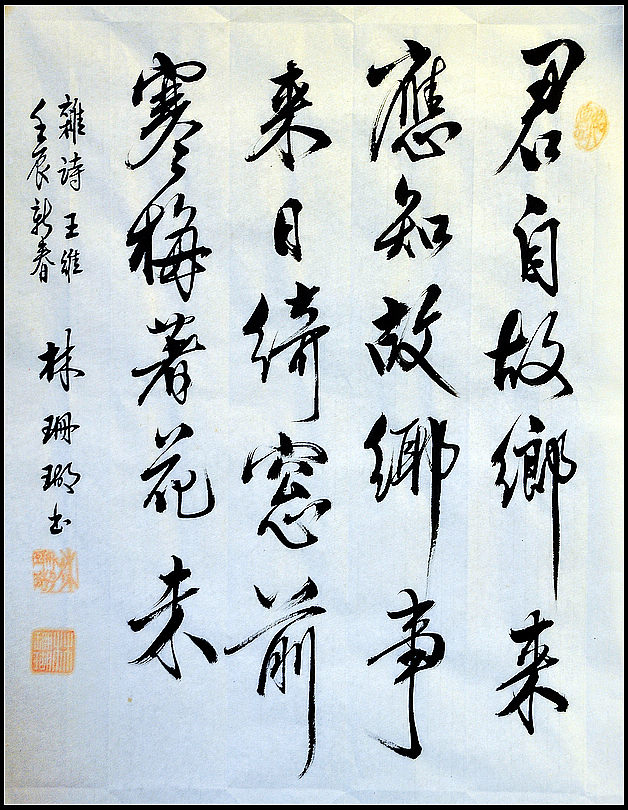 君自故鄉來
應知故鄉事
來日綺窓前
寒梅著花未
雜詩 王維
壬辰新春
林珊瑚书